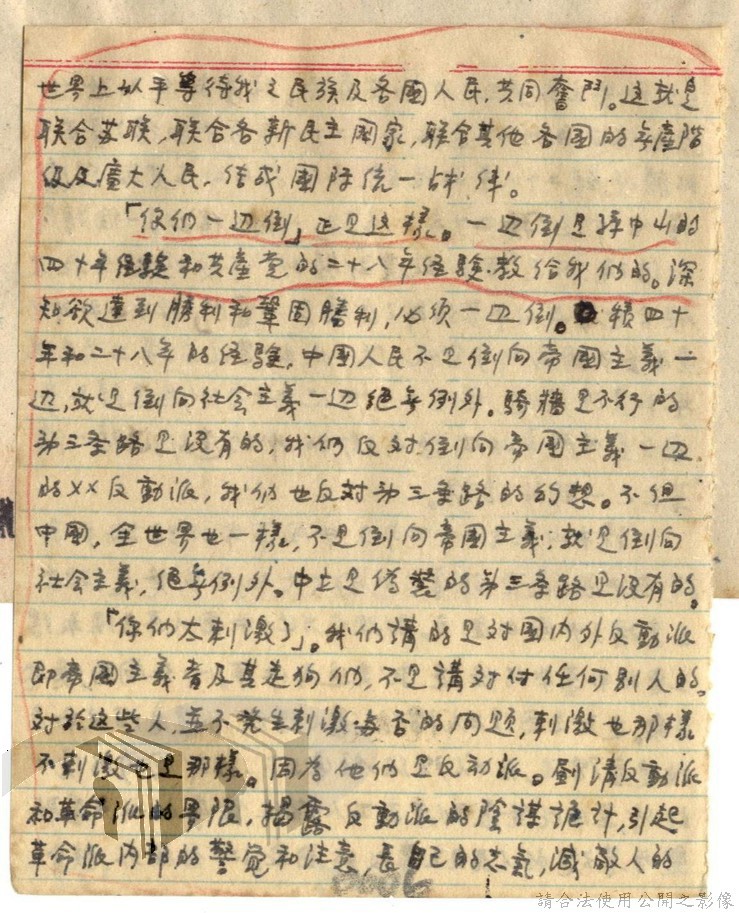 世界上以平等待我之民族及各國人民,共同奮鬥。这就是
联合苏联,联合各新民主國家,联合其他各國的无產階
级及廣大人民,结成國际统一战线。
「你们一边倒」正是这樣。一边倒是孫中山的
四十年经験和共產党的二十八年经験教给我们的。深
知欲達到勝利和鞏固勝利,必须一边倒。積四十
年和二十八年的经験,中國人民不是倒向帝國主義一
边,就是倒向社会主義一边绝无例外。騎牆是不行的
第三条路是没有的,我们反对倒向帝國主義一边
的XX反動派,我们也反对第三条路的幻想。不但
中國,全世界也一樣,不是倒向帝國主義,就是倒向
社会主義,绝无例外。中立是偽裝的第三条路是没有的。
「你们太刺激了」。我们講的是对国内外反動派
即帝國主義者及其走狗们,不是講对付任何别人的。
对於这些人,並不発生刺激与否的问题,刺激也那樣
不刺激也是那樣。因為他们是反动派。劃清反動派
和革命派的界限,揭露反動派的陰謀詭计,引起
革命派内部的警覚和注意,長自己的志氣,滅敵人的
0006
請合法使用公開之影像